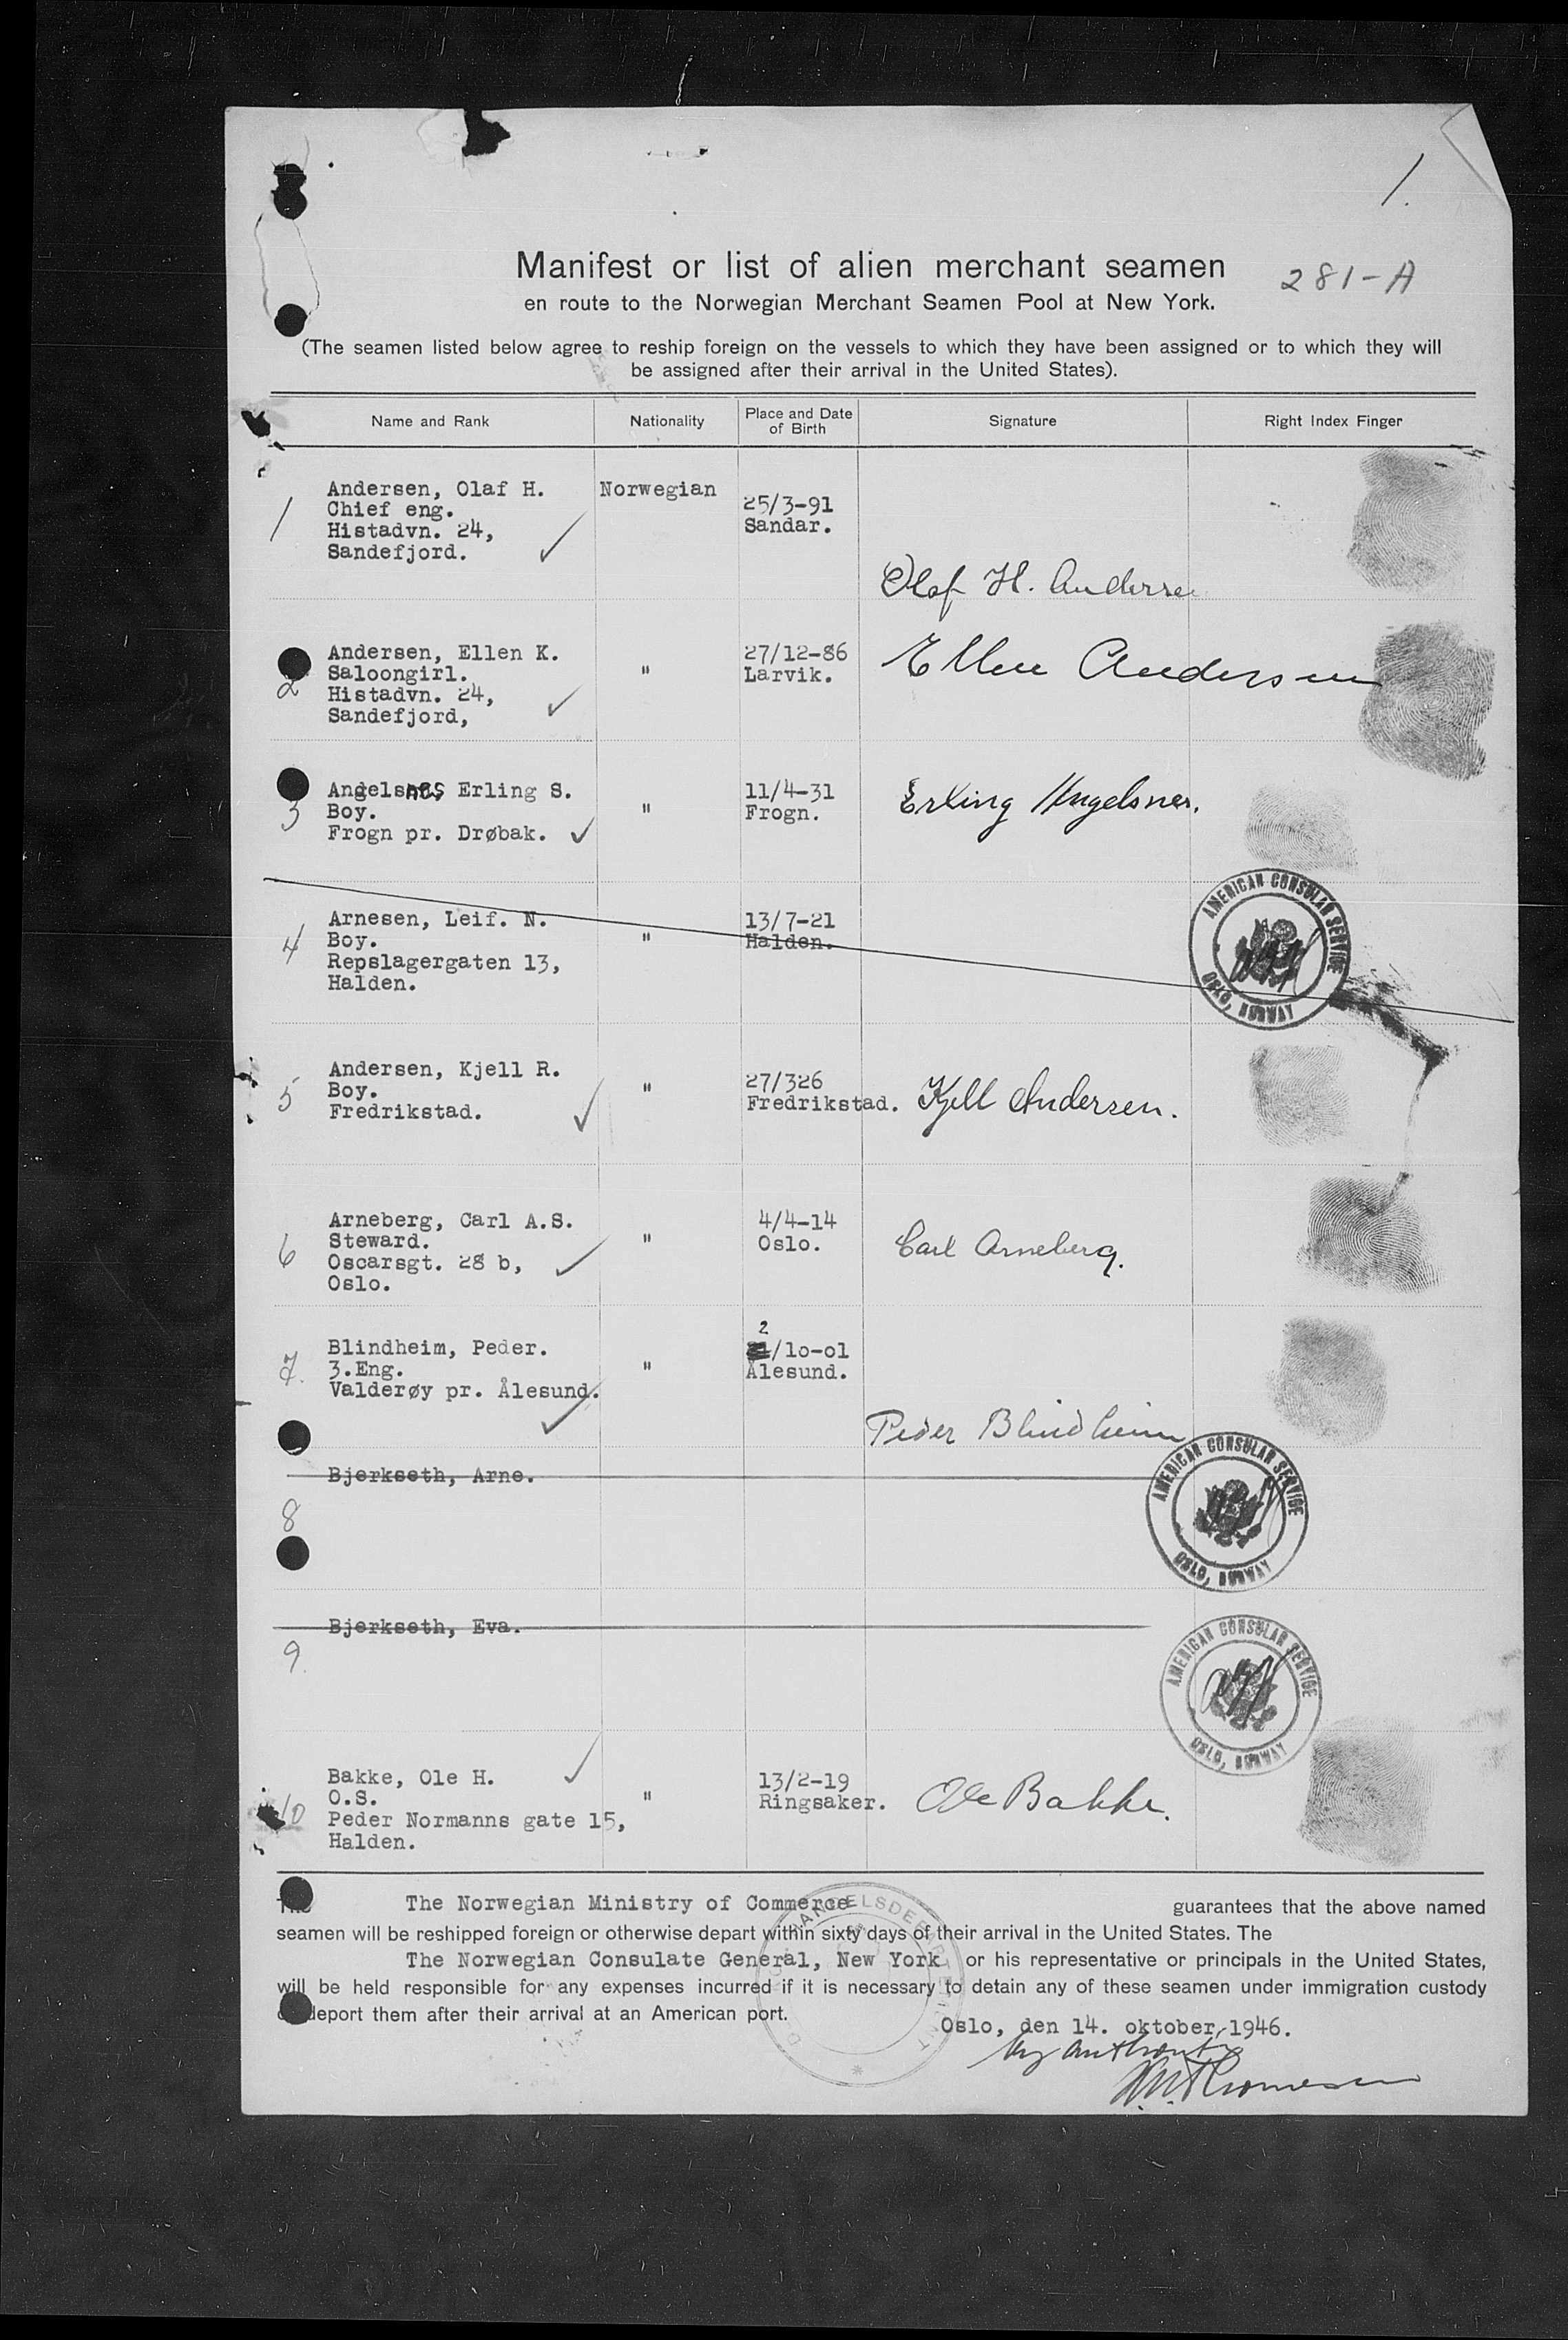 1.
Manifest or list of alien merchant seamen
281-A
en route to the Norwegian Merchant Seamen Pool at New York.
(The seamen listed below agree to reship foreign on the vessels to which they have been assigned or to which they will
be assigned after their arrival in the United States).
Name and Rank Nationality Place and Date of Birth Signature Right Index Finger
1
Andersen, Olaf H. Norwegian
Chief eng. 25/3-91
Histadvn. 24, Sandar.
Sandefjord.
Olaf H. Anderse
2
Andersen, Ellen K. 27/12-86
Saloongirl. " Larvik. Ellen Andersen
Histadvn. 24,
Sandefjord,
3
Angelsnes Erling S. 11/4-31
Boy. " Frogn. Erling Angelsnes.
Frogn pr. Drøbak.
4
Arnesen, Leif. N. 13/7-21
Boy. " Halden.
Repslagergaten 13,
Halden.
AMERICAN CONSULAR SERVICE
OSLO, NORWAY
5
Andersen, Kjell R. 27/326
Boy. " Fredrikstad. Kjell Andersen.
Fredrikstad.
6
Arneberg, Carl A.S. 4/4-14
Steward. " Oslo. Carl Arneberg.
Oscarsgt. 28 b,
Oslo.
7.
2
Blindheim, Peder. /10-01
3.Eng. " Ålesund.
Valderøy pr. Ålesund.
Peder Blindheim
Bjerkseth, Arne.
8
AMERICAN CONSULAR SERVICE
OSLO, NORWAY
Bjerkseth, Eva.
9.
AMERICAN CONSULAR SERVICE
OSLO, NORWAY
10
Bakke, Ole H. 13/2-19
O.S. " Ringsaker. Ole Bakke.
Peder Normanns gate 15,
Halden.
The The Norwegian Ministry of Commerce guarantees that the above named
seamen will be reshipped foreign or otherwise depart within sixty days of their arrival in the United States. The
The Norwegian Consulate General, New York or his representative or principals in the United States,
will be held responsible for any expenses incurred if it is necessary to detain any of these seamen under immigration custody
or deport them after their arrival at an American port.
Oslo, den 14. oktober 1946.
by authority